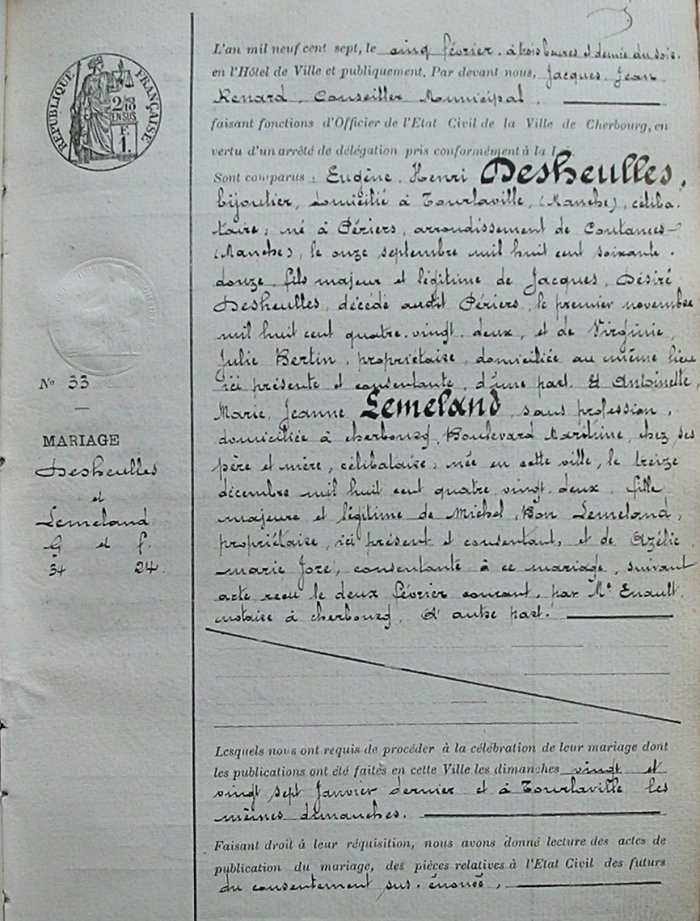 RÉPUBLIQUE FRANÇAISE
2/10
EN SUS
F.
1.
L'an mil neuf cent sept, le cinq février à trois heures et demie du soir.
en l'Hôtel de Ville et publiquement, Par devant nous, Jacques, Jean
Renard, Conseiller Municipal,
faisant fonctions d'Officier de l'Etat Civil de la Ville de Cherbourg, en
vertu d'un arrêté de délégation pris conformément à la
Sont comparus : Eugène, Henri Desheulles,
bijoutier, domicilié à Tourlaville, (Manche), céliba-
taire, né à Périers, arrondissement de Coutances
(Manche), le onze septembre mil huit cent soixante-
douze, fils majeur et légitime de Jacques, Désiré
Desheulles, décédé audit Périers, le premier novembre
mil huit cent quatre-vingt-deux, et de Virginie,
Julie Bertin, propriétaire, domiciliée au même lieu
ici présente et consentante, d'une part. Et Antoinette
Marie, Jeanne Lemeland, sans profession,
domiciliée à Cherbourg, Boulevard Maritime, chez ses
père et mère, célibataire, née en cette ville, le treize
décembre mil huit cent quatre-vingt-deux, fille
majeure et légitime de Michel, Bon Lemeland,
propriétaire, ici présent et consentant, et de Azélie
Marie Jore, consentante à ce mariage, suivant
acte reçu le deux février courant, par Me Enault,
notaire à Cherbourg, d'autre part.
No 33
MARIAGE
Desheulles
et
Lemeland
G et f.
34 24.
Lesquels nous ont requis de procéder à la célébration de leur mariage dont
les publications ont été faites en cette Ville les dimanches vingt et
vingt sept Janvier dernier et à Tourlaville les
mêmes dimanches.
Faisant droit à leur réquisition, nous avons donné lecture des actes de
publication du mariage, des pièces relatives à l'Etat Civil des futurs
du consentement sus-énoncé,